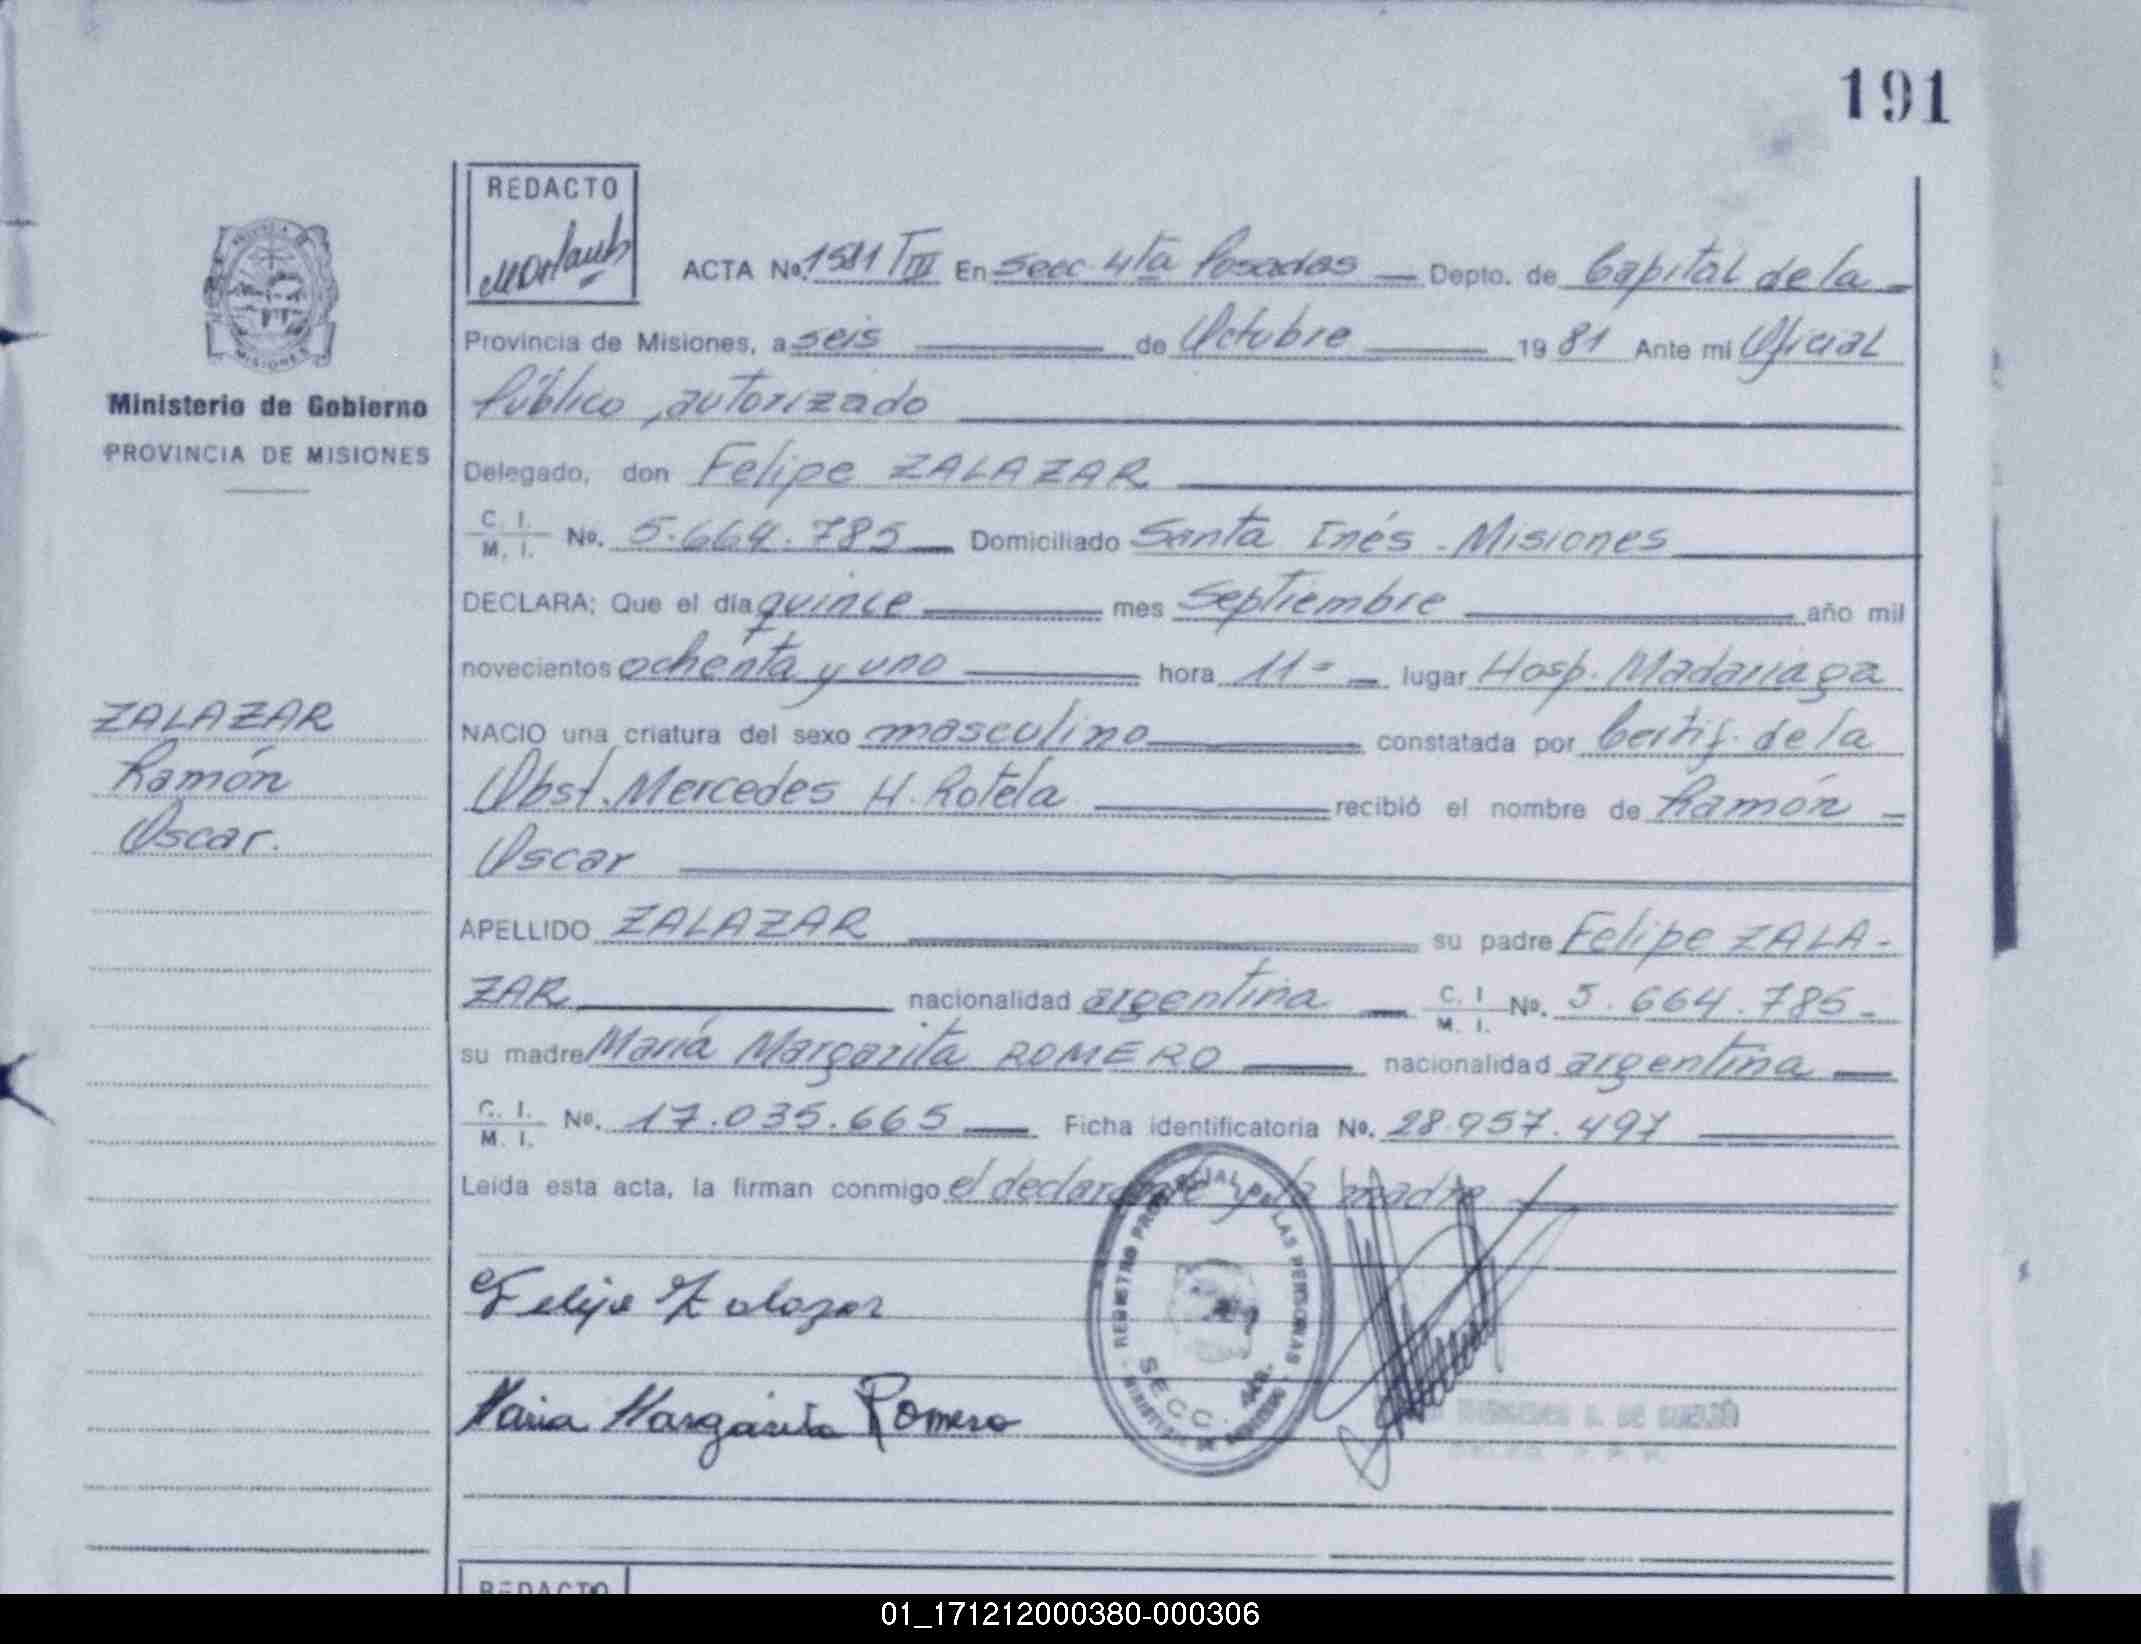 191
REDACTO
ACTA No. 1511 T III En Secc 4ta Posadas Depto. de Capital de la
Provincia de Misiones, a seis de Octubre 19 81 Ante mi Oficial
Público, autorizado
Ministerio de Gobierno
PROVINCIA DE MISIONES
Delegado, don Felipe ZALAZAR
C. I. M. I. No. 5.664.785 Domiciliado Santa Inés - Misiones
DECLARA; Que el día quince mes Septiembre año mil
novecientos ochenta y uno hora 11- lugar Hosp. Madariaga
NACIO una criatura del sexo masculino constatada por Certif. de la
Obst. Mercedes H. Rotela recibió el nombre de Ramón
Oscar
ZALAZAR
Ramón
Oscar.
APELLIDO ZALAZAR su padre Felipe ZALA-
ZAR nacionalidad argentina C. I M. I. No. 5.664.785-
su madre María Margarita ROMERO nacionalidad argentina
C. I. M. I. No. 17.035.665 Ficha identificatoria No. 28.957.497
Leída esta acta, la firman conmigo el declarante y la madre
Felipe Zalazar
Maria Margarita Romero
REGISTRO PROVINCIAL DE LAS PERSONAS
SECC. 4ta.
REDACTO
01_171212000380-000306